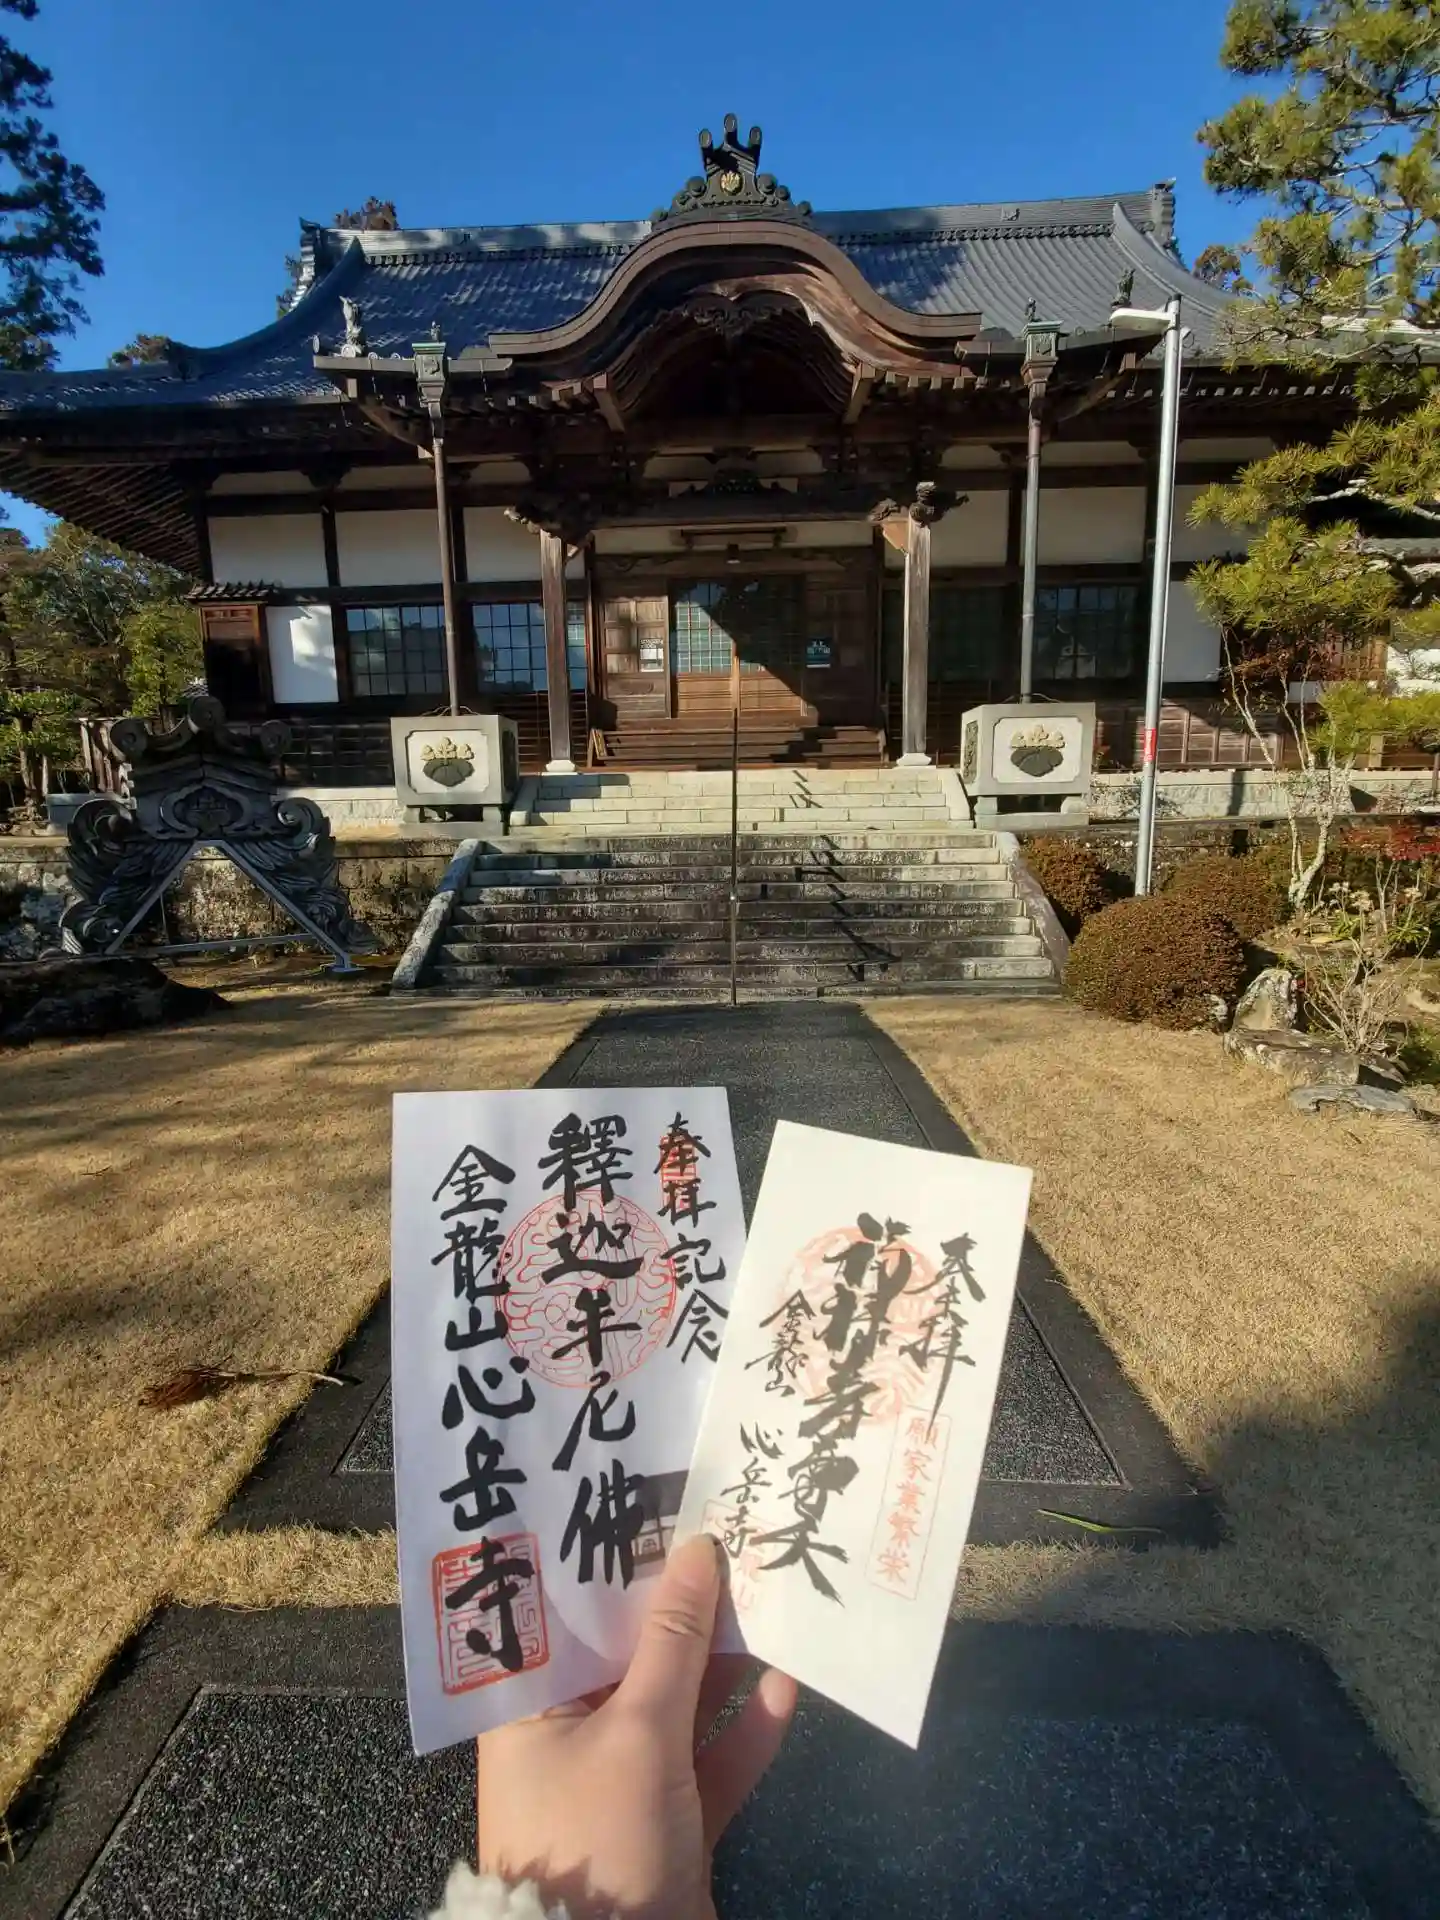 奉拝記念
釋迦牟尼佛
金龍山心岳寺
奉拝
福禄寿尊天
願家業繁栄
金龍山
心岳寺